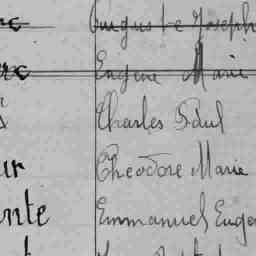 rc Auguste Joseph
rc Eugène Marie
Charles Paul
ur Théodore Marie
nte Emmanuel Eugè